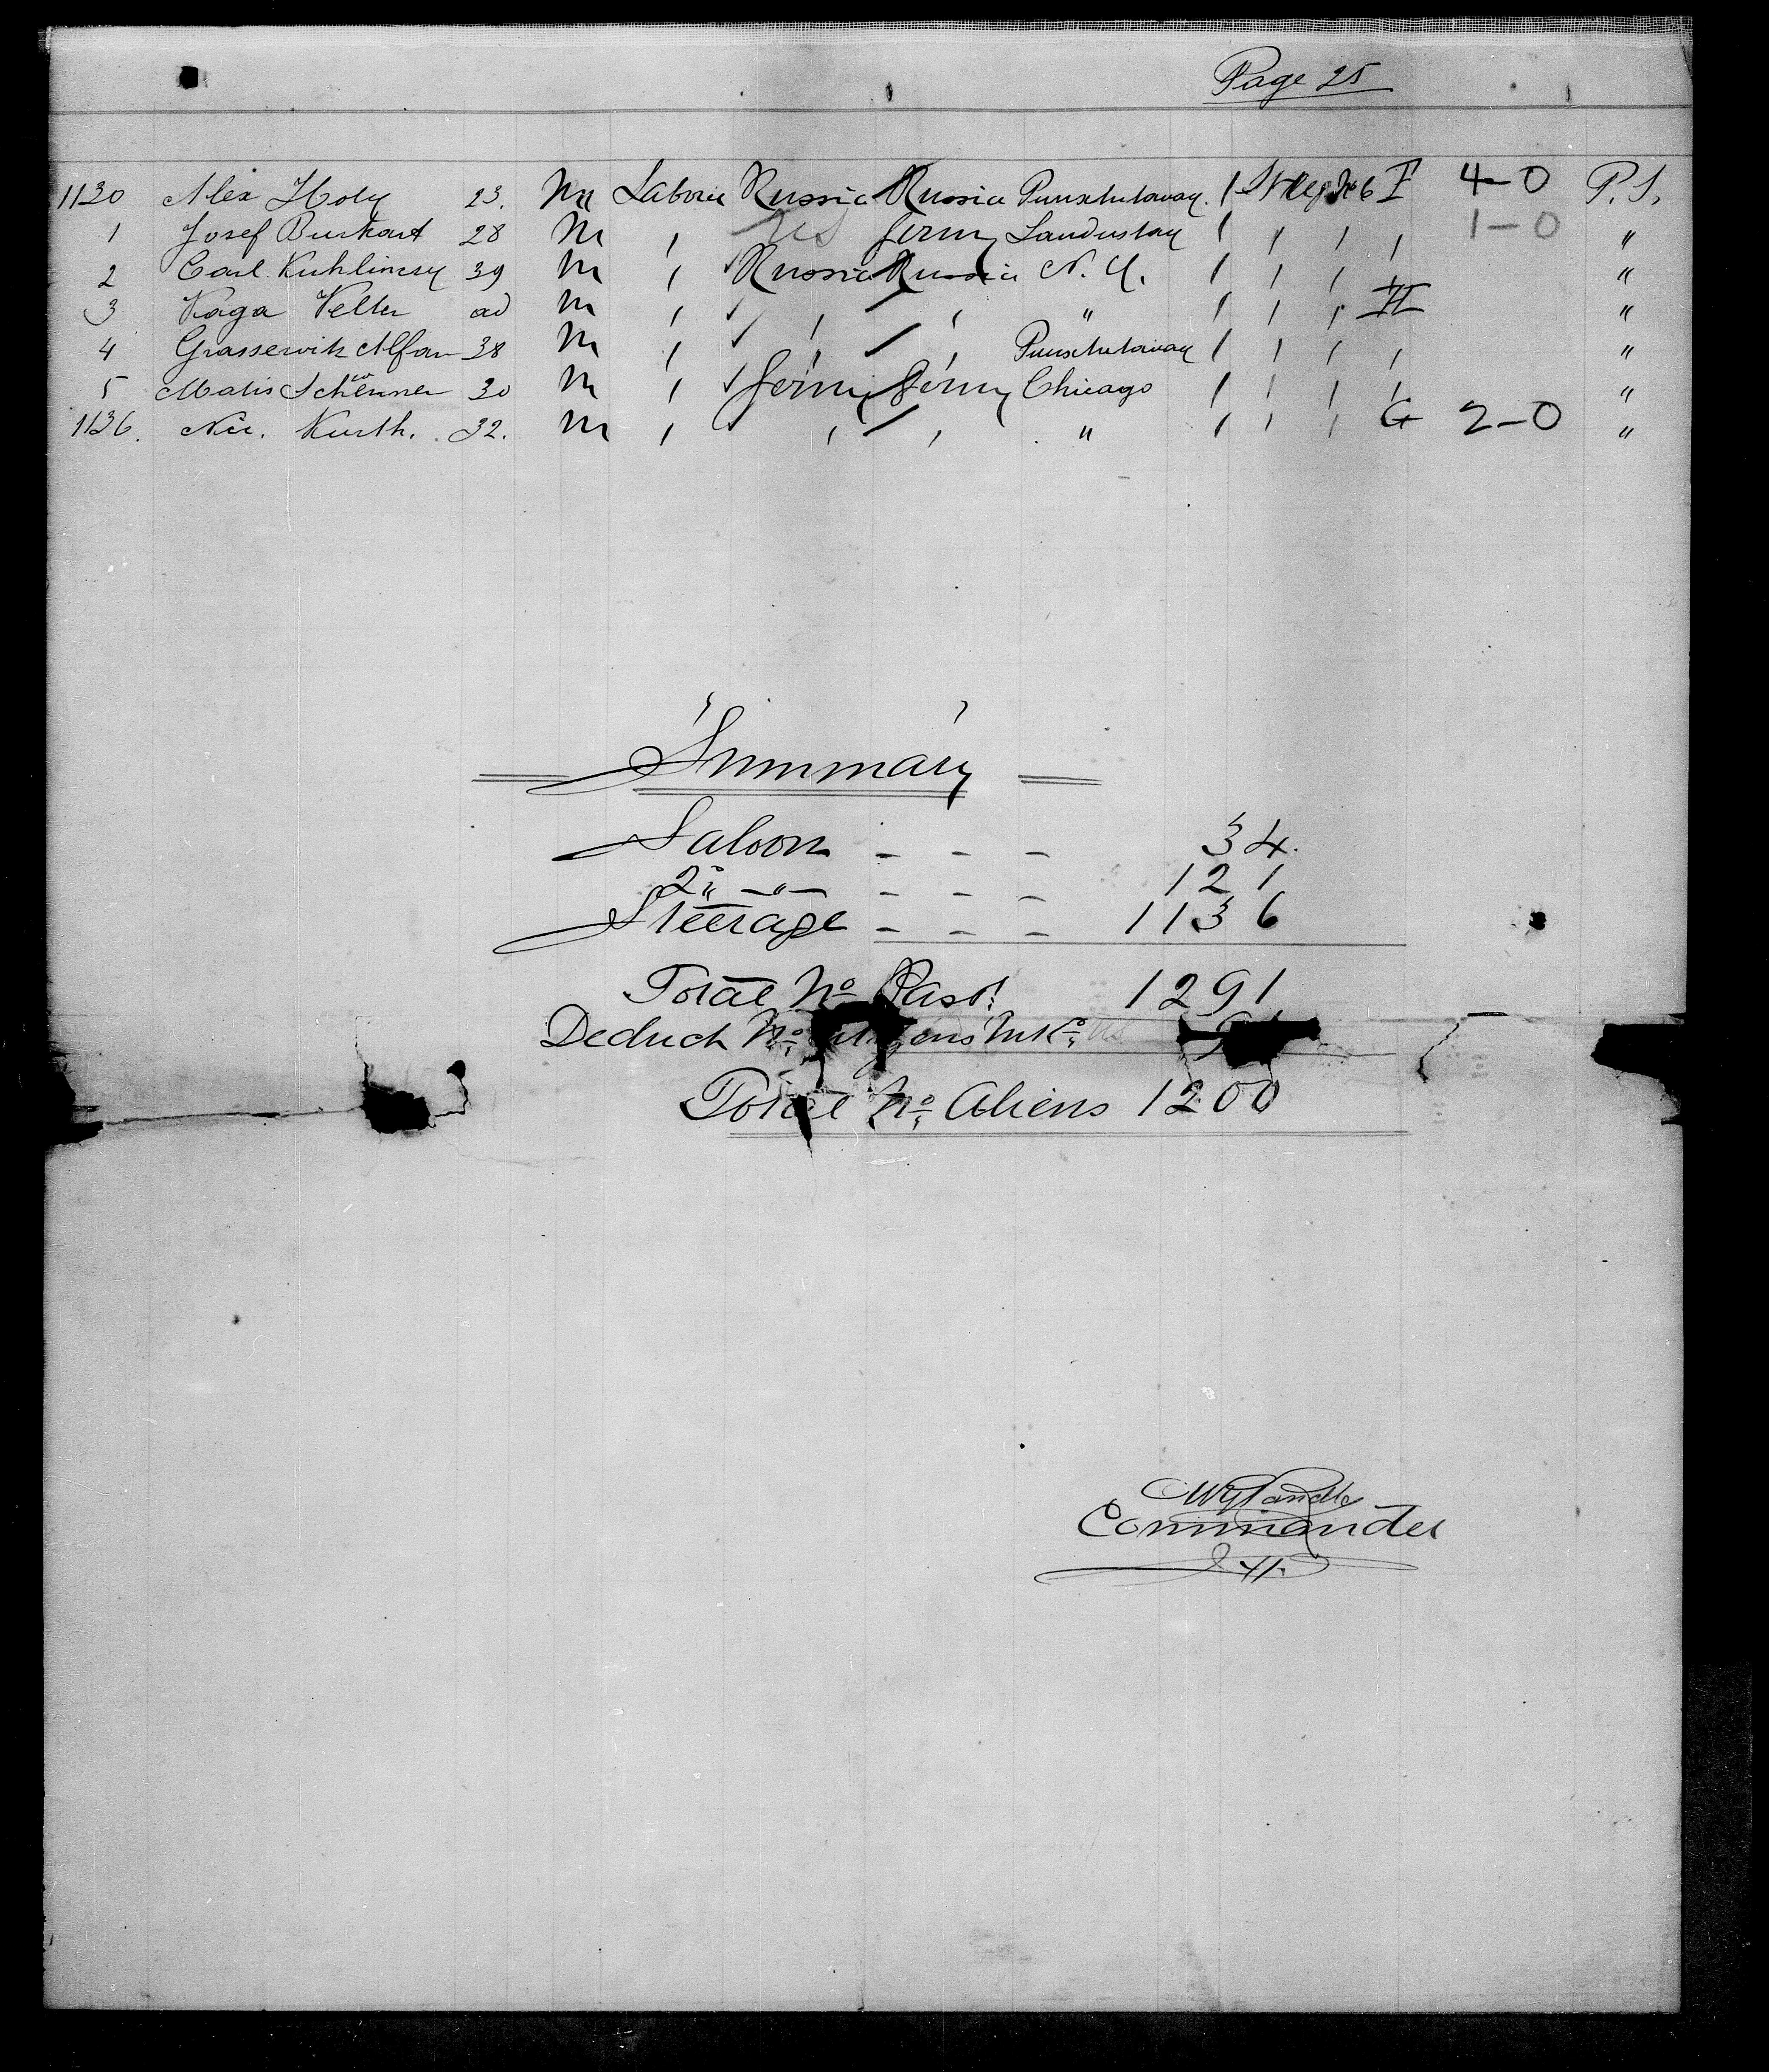 Page 25
1130 Alex Holy 23. M Laborer Russia Russia Punxhutaway. 1 6 I 4-0 P.S.
1 Josef Burkart 28 M ‚ US Germy Landustay 1 ‚ ‚ ‚ 1-0 "
2 Carl Kuhlincsy 39 M ‚ Russia Russia N. Y. 1 ‚ ‚ ‚ "
3 Kaga Velter ad M ‚ ‚ ‚ " 1 ‚ ‚ H "
4 Grasserwitz Alfan 38 M ‚ ‚ ‚ Punxhutaway 1 ‚ ‚ ‚ "
5 Matis 30 M ‚ Germy Germy Chicago 1 ‚ ‚ ‚ "
1136. Nic. Kurth. 32. M ‚ ‚ ‚ " 1 ‚ ‚ G 2-0 "
Summary
Saloon - - - 34.
2° " -"- - - - 121
Steerage - - - 1136
Total No Pass: 1291
Deduct No. U.S.
Total No. Aliens 1200
Commander